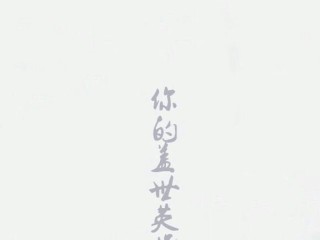 你的盖世英